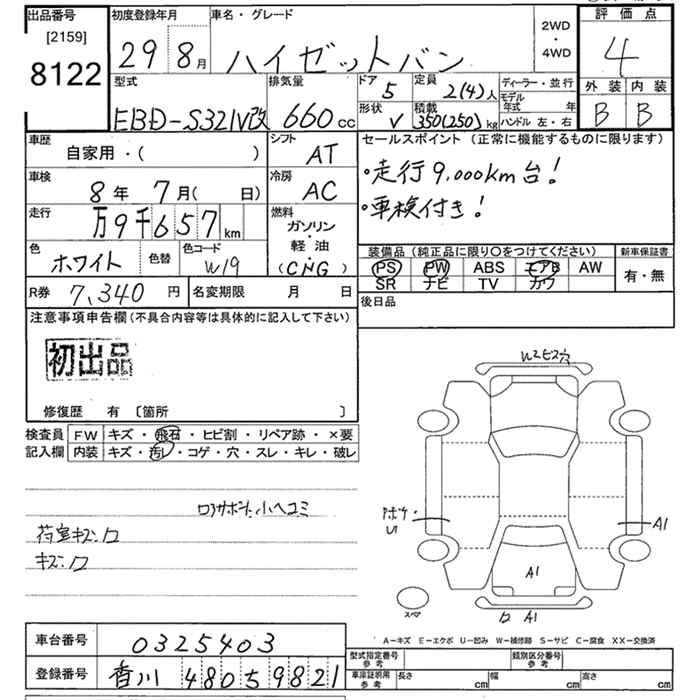 出品番号
[2159]
8122
初度登録年月
29 8月
車名・グレード
ハイゼットバン
2WD
・
4WD
評価点
4
外装 内装
B B
型式
EBD-S321V改
排気量
660cc
ドア 5
形状 V
定員 2(4)人
積載 350(250)kg
ディーラー・並行
モデル年式 年
ハンドル 左・右
車歴
自家用・( )
シフト
AT
車検
8年 7月( 日)
冷房
AC
走行
万9千657km
燃料
ガソリン
・
軽油
(CNG)
色
ホワイト
色替
色コード
W19
R券 7,340円
名変期限 月 日
セールスポイント (正常に機能するものに限ります)
・走行9,000km台!
・車検付き!
装備品 (純正品に限り〇をつけてください)
新車保証書
PS PW ABS エアB AW
SR ナビ TV カワ
有・無
後日品
注意事項申告欄(不具合内容等は具体的に記入して下さい)
初出品
修復歴 有 〔箇所 〕
検査員記入欄
FW キズ・飛石・ヒビ割・リペア跡・×要
内装 キズ・汚レ・コゲ・穴・スレ・キレ・破レ
小ヘコミ
荷室キズ
キズ
W2ビス穴
U1
A1
A1
A1
スペア
A-キズ E-エクボ U-凹み W-補修跡 S-サビ C-腐食 XX-交換済
車台番号 0325403
登録番号 香川 480 59821
型式指定番号 参考
類別区分番号 参考
車庫証明用 参考
長さ cm 幅 cm 高さ cm